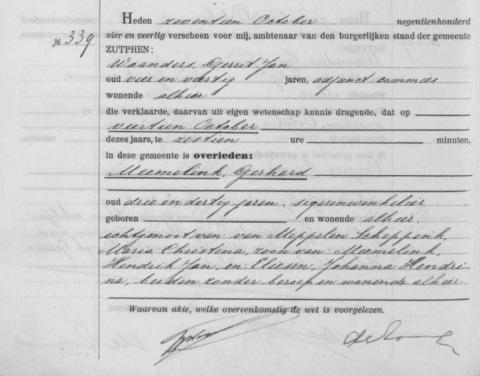 Heden zeventien October negentienhonderd
№. 339
vier en veertig verscheen voor mij, ambtenaar van den burgerlijken stand der gemeente
ZUTPHEN:
Waanders, Gerrit Jan
oud vier en veertig jaren, adjunct commies
wonende alhier
die verklaarde, daarvan uit eigen wetenschap kennis dragende, dat op
veertien October
dezes jaars, te zestien ure minuten,
in deze gemeente is overleden:
Meemelink, Gerhard
oud drie en dertig jaren, sigarenwinkelier
geboren en wonende alhier,
echtgenoot van van Meppelen Scheppink,
Maria Christina, zoon van: Meemelink,
Hendrik Jan, en: Eliesen, Johanna Hendri
na, beiden zonder beroep en wonende alhier
Waarvan akte, welke overeenkomstig de wet is voorgelezen.